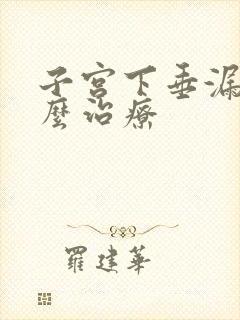 子宫下垂漏
麼治療
羅建華